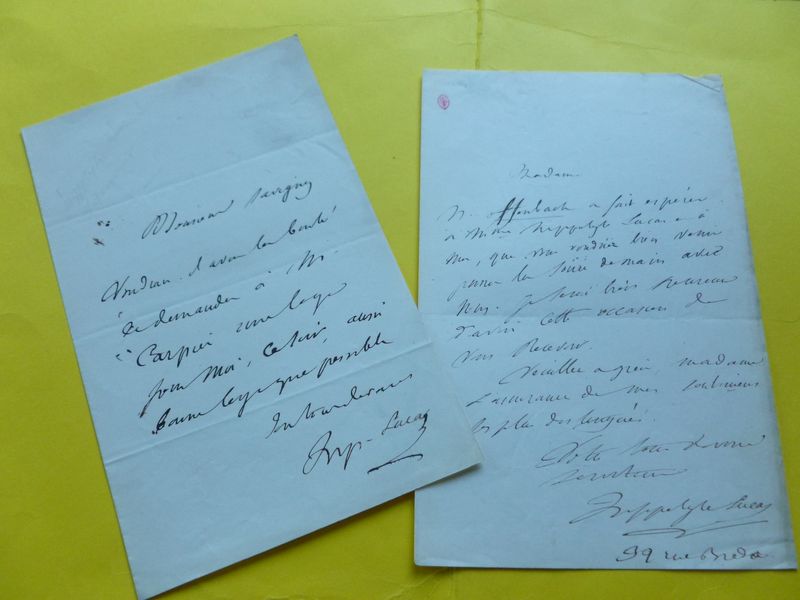 Monsieur Savigny
Voudrait il avoir la bonté
de demander à Mr
Carpier une loge
pour moi, ce soir, aussi
bonne loge que possible
Hyp. Lucas
Madame
M. Offenbach a fait espérer
à Mme Hippolyte Lucas et à
moi, que vous voudriez bien venir
passer la soirée de main avec
nous. je serai très heureux
d'avoir cette occasion de
vous recevoir.
Veuillez agréer, madame
l'assurance de mes sentimens
les plus distingués.
Votre tout dévoué
serviteur
Hippolyte Lucas
39 rue Breda